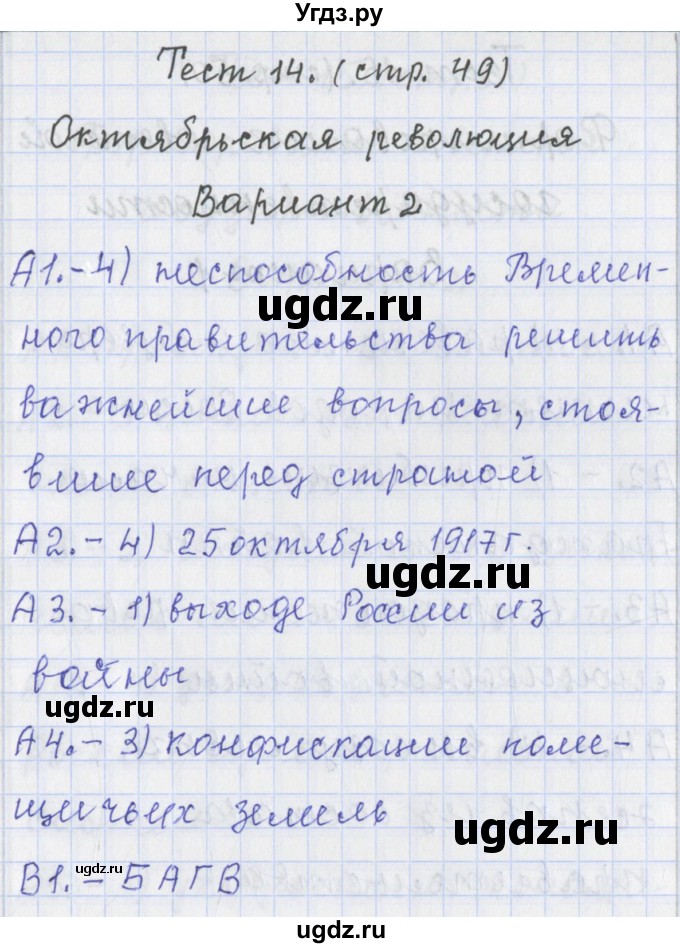 Угдз.ру
Тест 14. (стр. 49)
Октябрьская революция
Вариант 2
А1.-4) неспособность Времен-
ugdz.ru
ного правительства решить
важнейшие вопросы, стоя-
вшие перед страной
А2.-4) 25 октября 1917 г.
ugdz.ru
А3.-1) выходе России из
войны
ugdz.ru
А4.-3) конфискации поме-
ugdz.ru
щичьих земель
ugdz.ru
В1.-БАГВ
ugdz.ru